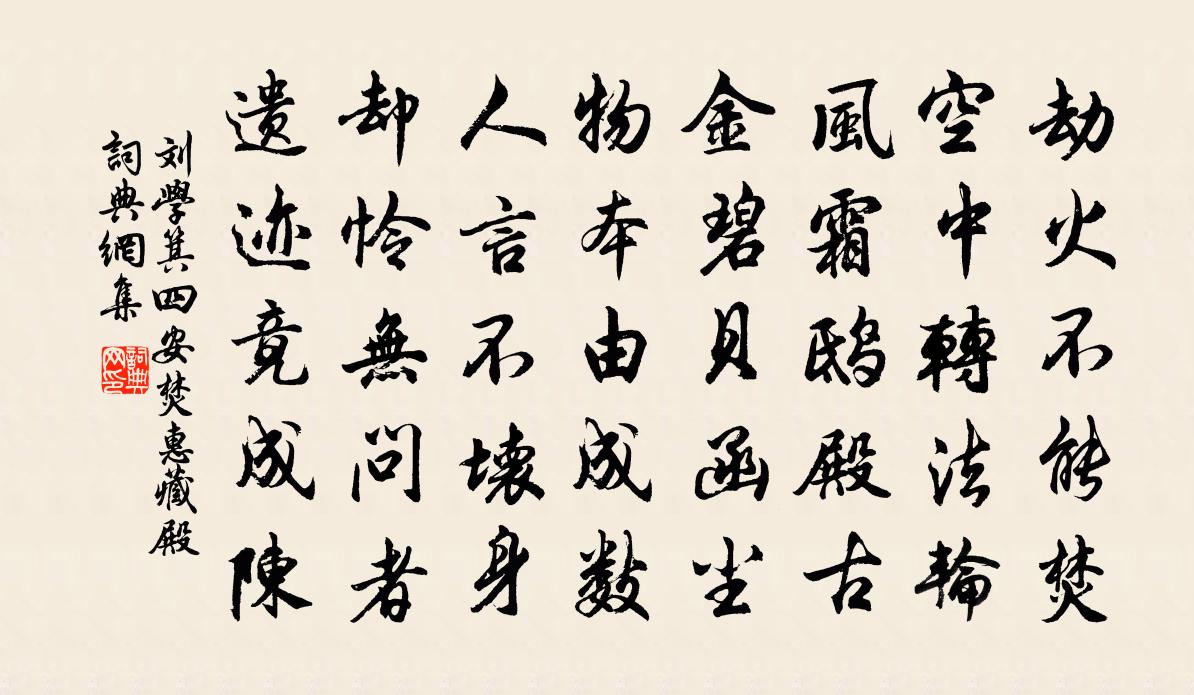 劫火不能焚
空中轉法輪
風霜鴟殿古
金碧貝函尘
物本由成数
人言不壞身
却怜無问者
遗迹竟成陳
刘學箕四安焚惠藏殿
詞典網集
詞典网印